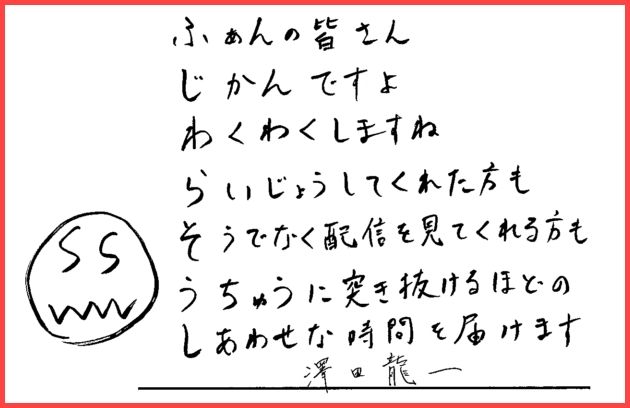 ふぁんの皆さん
じかんですよ
わくわくしますね
らいじょうしてくれた方も
そうでなく配信を見てくれる方も
うちゅうに突き抜けるほどの
しあわせな時間を届けます
澤田龍一
SS